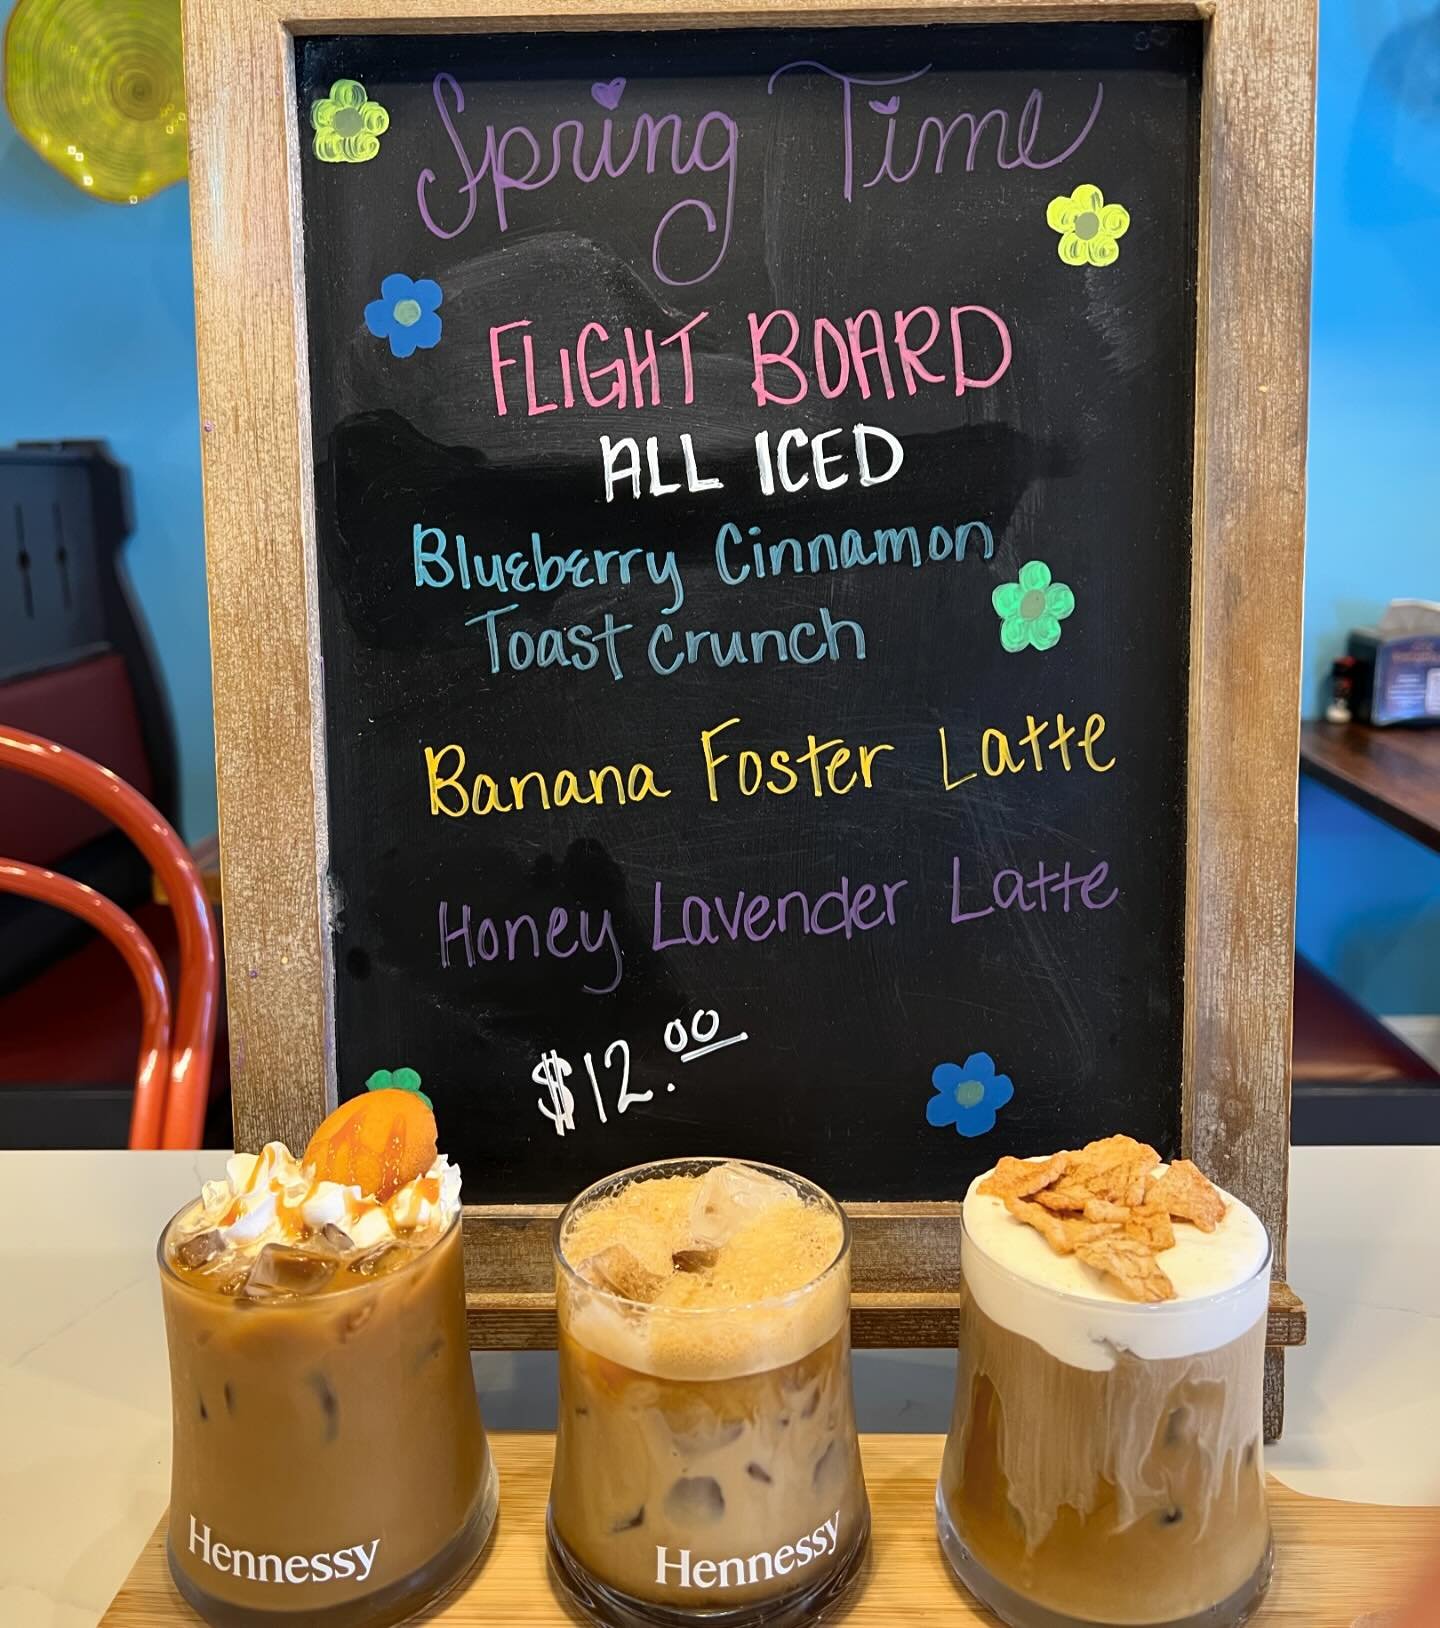 Spring Time
FLIGHT BOARD
ALL ICED
Blueberry Cinnamon
Toast crunch
Banana Foster Latte
Honey Lavender Latte
$12.00
Hennessy
Hennessy